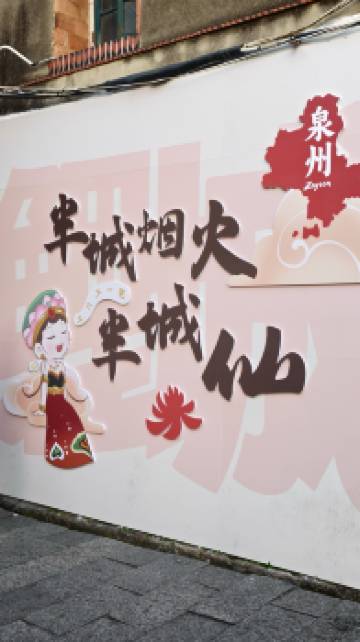 泉州
Zayton
半城烟火
半城仙